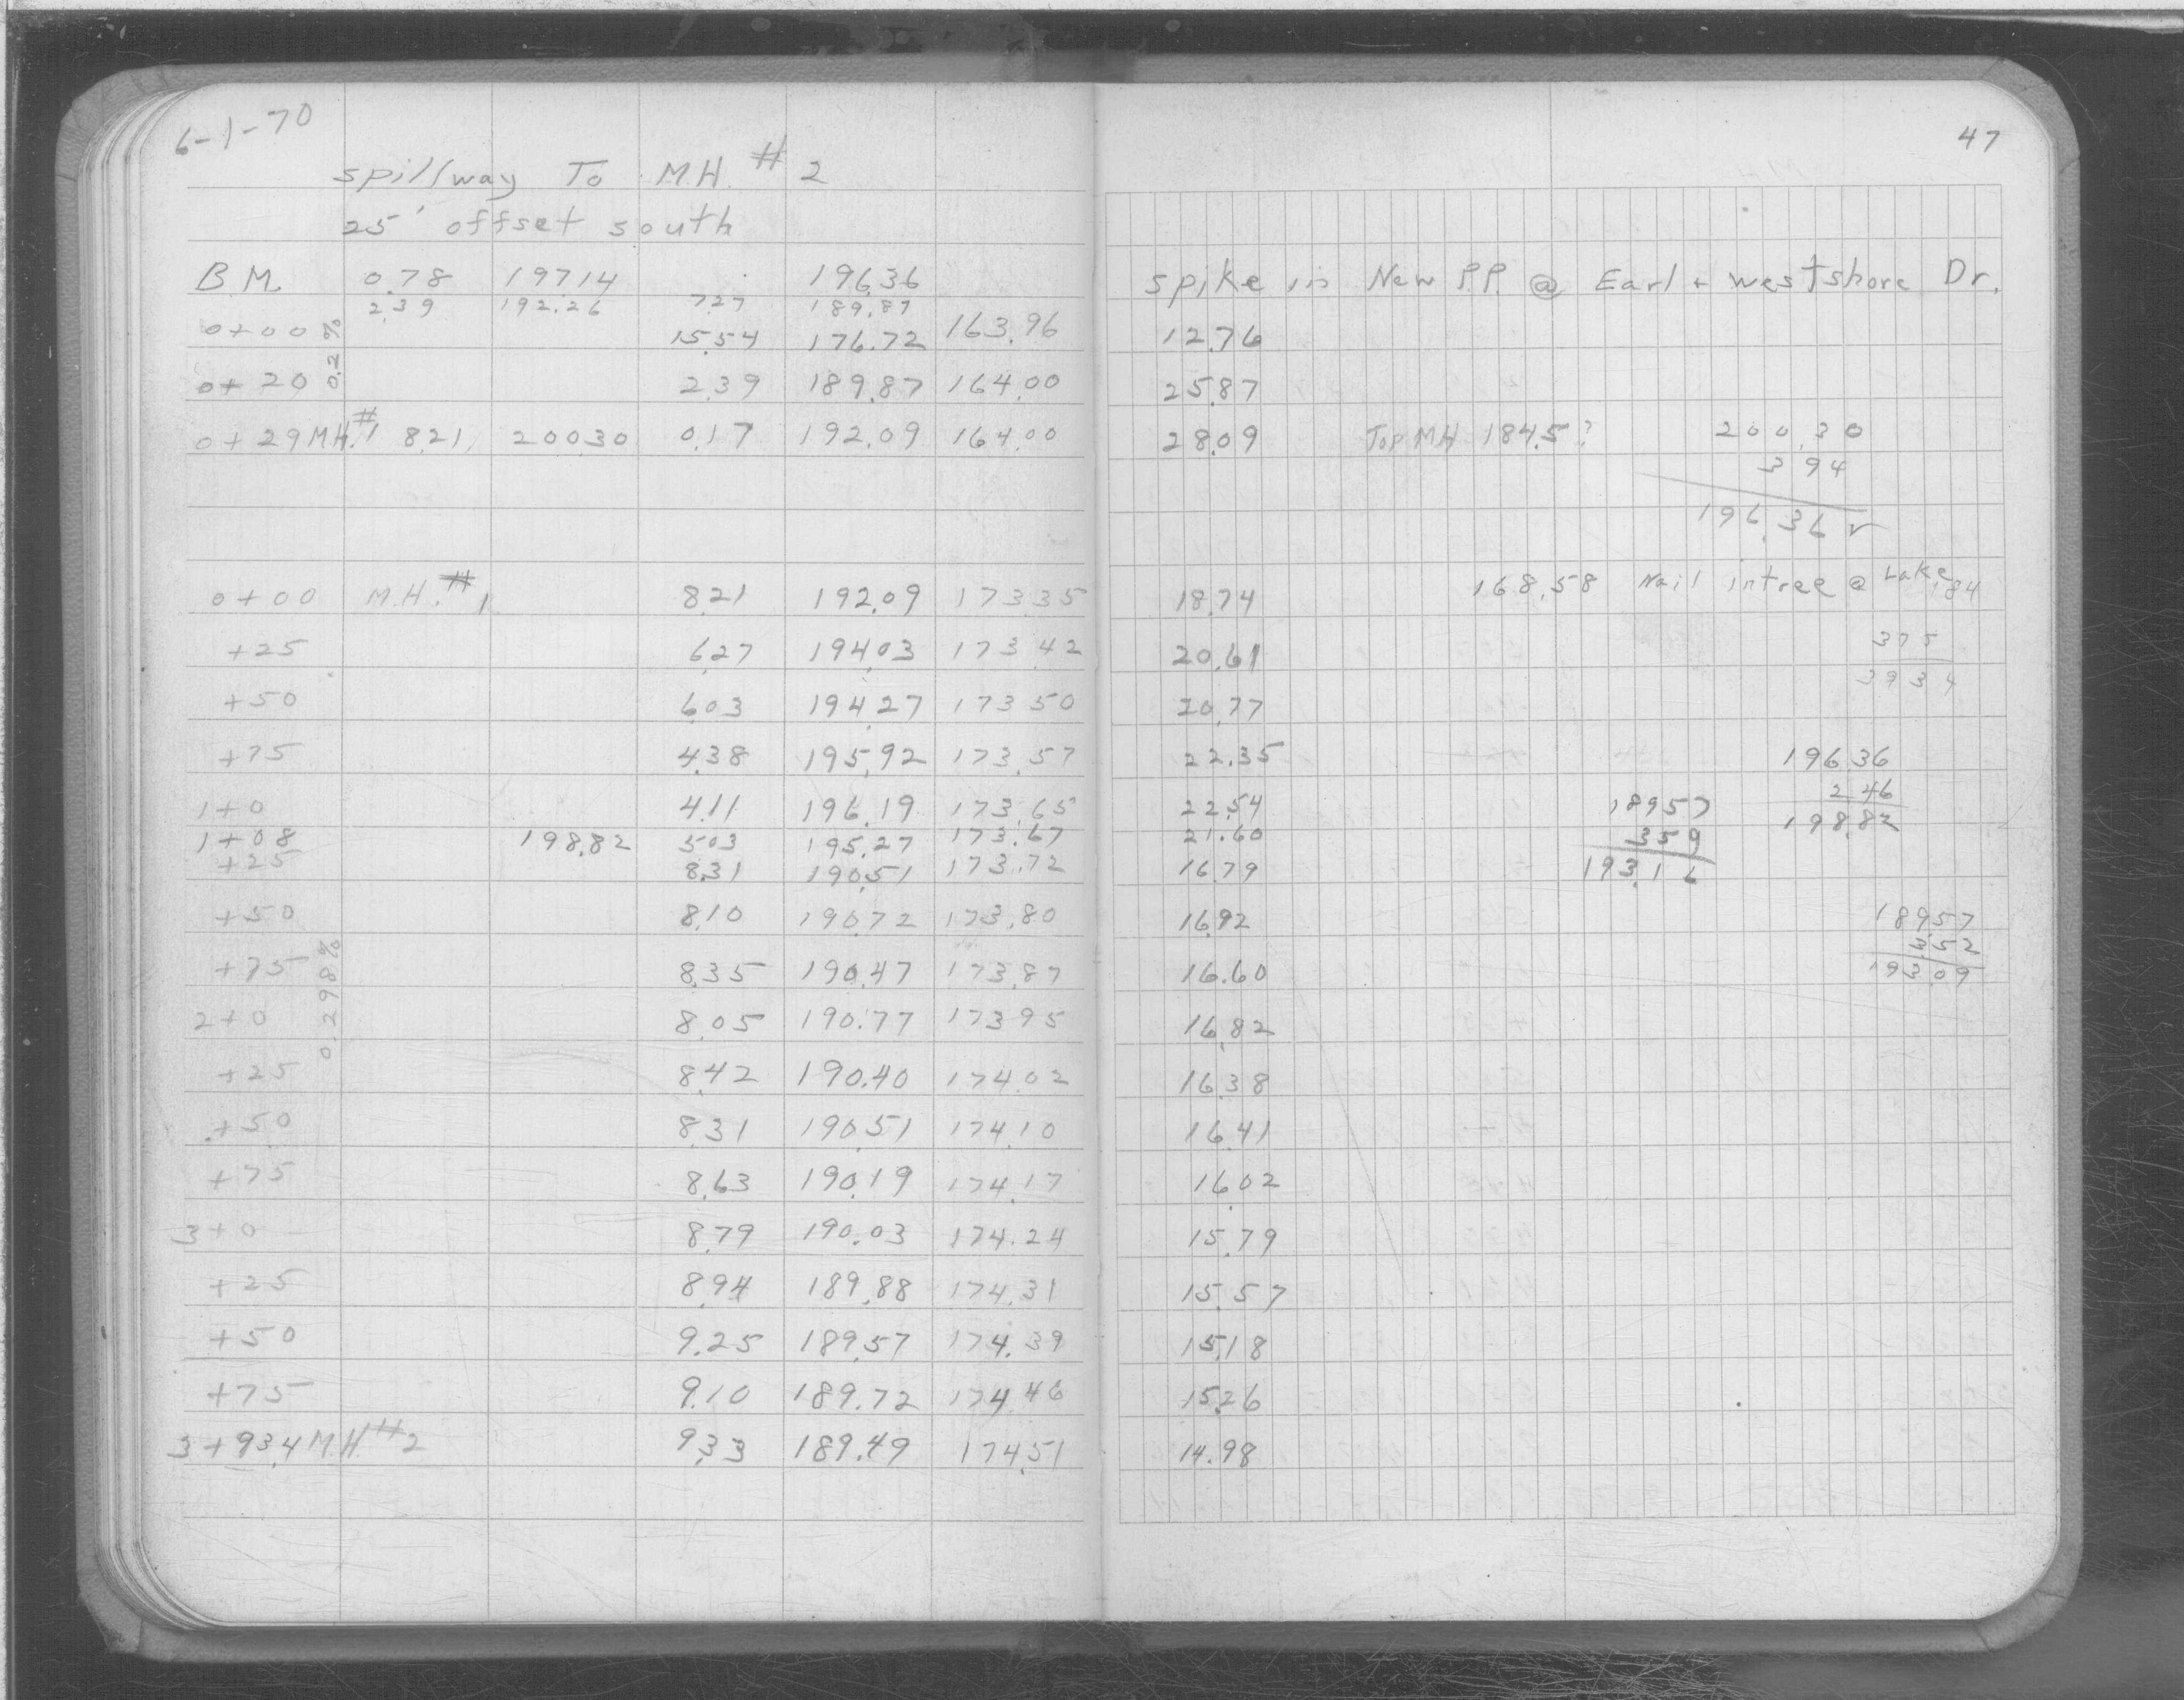 6-1-70
47
spillway To M.H. #2
25' offset south
B.M. 0.78 197.14 196.36 spike in New P.P. @ Earl + Westshore Dr.
2.39 192.26 7.27 189.87
0+00 15.54 176.72 163.96 12.76
0.2%
0+20 2.39 189.87 164.00 25.87
0+29 MH.#1 8.21 200.30 0.17 192.09 164.00 28.09 Top MH 184.5? 200.30
3 94
196.36 ✓
0+00 M.H.#1 8.21 192.09 173.35 18.74 168.58 Nail in tree @ Lake
184
+25 6.27 194.03 173.42 20.61 375
+50 6.03 194.27 173.50 20.77 3934
+75 4.38 195.92 173.57 22.35 196.36
1+0 4.11 196.19 173.65 22.54 189.57 2.46
1+08 198.82 5.03 195.27 173.67 21.60 3.59 198.82
+25 8.31 190.51 173.72 16.79 193.16
+50 8.10 190.72 173.80 16.92 189.57
3.52
+75 8.35 190.47 173.87 16.60 193.09
0.298%
2+0 8.05 190.77 173.95 16.82
+25 8.42 190.40 174.02 16.38
+50 8.31 190.51 174.10 16.41
+75 8.63 190.19 174.17 16.02
3+0 8.79 190.03 174.24 15.79
+25 8.94 189.88 174.31 15.57
+50 9.25 189.57 174.39 15.18
+75 9.10 189.72 174.46 15.26
3+93.4 M.H.#2 9.33 189.49 174.51 14.98